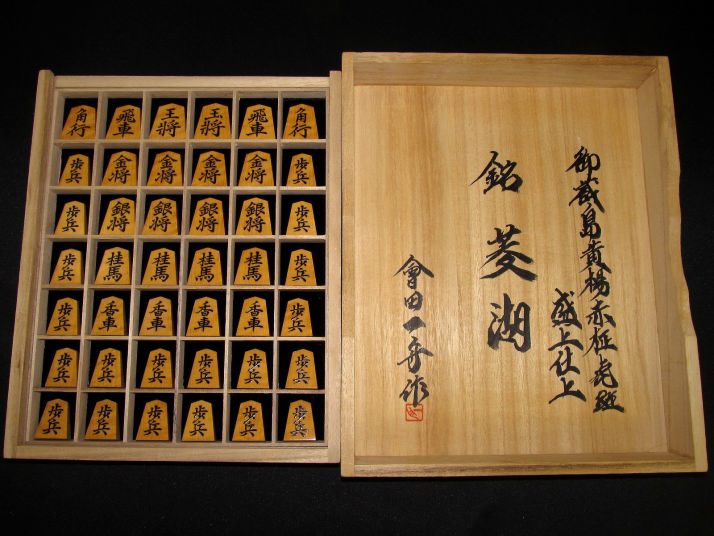 角行 飛車 王将 玉将 飛車 角行
歩兵 金将 金将 金将 金将 歩兵
歩兵 銀将 銀将 銀将 銀将 歩兵
歩兵 桂馬 桂馬 桂馬 桂馬 歩兵
歩兵 香車 香車 香車 香車 歩兵
歩兵 歩兵 歩兵 歩兵 歩兵 歩兵
歩兵 歩兵 歩兵 歩兵 歩兵 歩兵
御蔵島黄楊赤柾虎斑
盛上仕上
銘 菱湖
會田一舟作